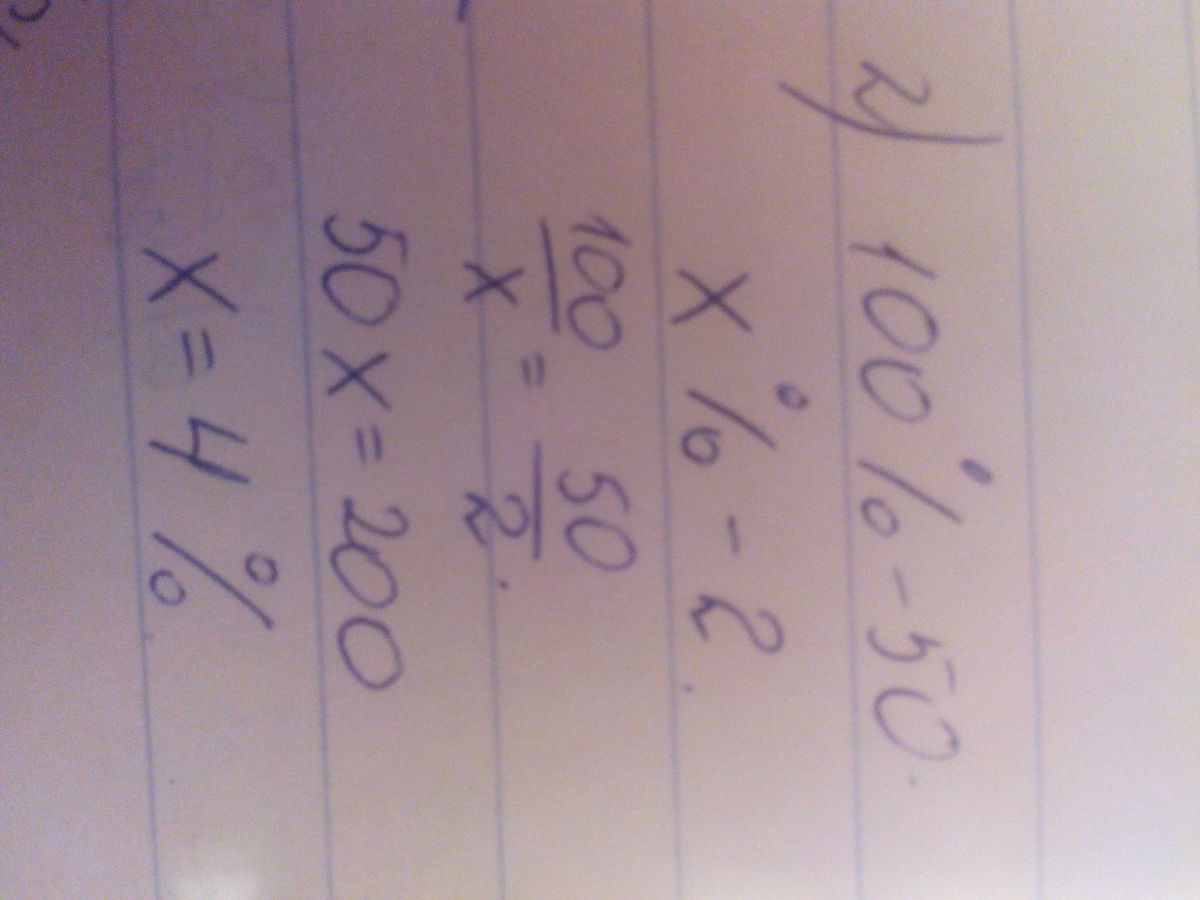 2) 100% - 50
x % - 2
100/x = 50/2
50x = 200
x = 4 %